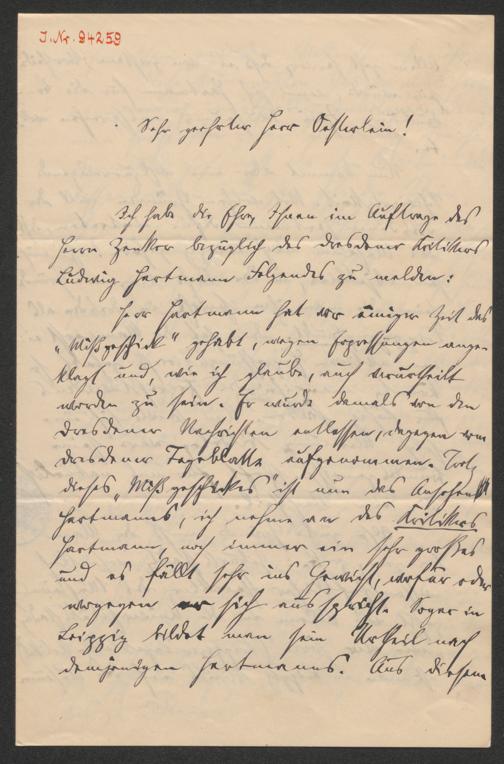 J.Nr. 94259
Sehr geehrter Herr Oesterlein!
Ich habe die Ehre, Ihnen im Auftrage des
Herrn Zenker bezüglich des dresdener Kritikers
Ludwig Hartmann Folgendes zu melden:
Herr Hartmann hat vor einiger Zeit das
„Mißgeschick" gehabt, wegen Erpressungen ange-
klagt und, wie ich glaube, auch verurtheilt
worden zu sein. Er wurde damals von den
Dresdener Nachrichten entlassen, dagegen vom
dresdener Tageblatte aufgenommen. Trotz
dieses „Mißgeschickes" ist nun das Ansehen
Hartmanns, ich nehme an des Kritikers
Hartmann, noch immer ein sehr großes
und es fällt sehr ins Gewicht, wofür oder
wogegen er sich ausspricht. Sogar in
Leipzig bildet man sein Urtheil nach
demjenigen Hartmanns. Aus diesem